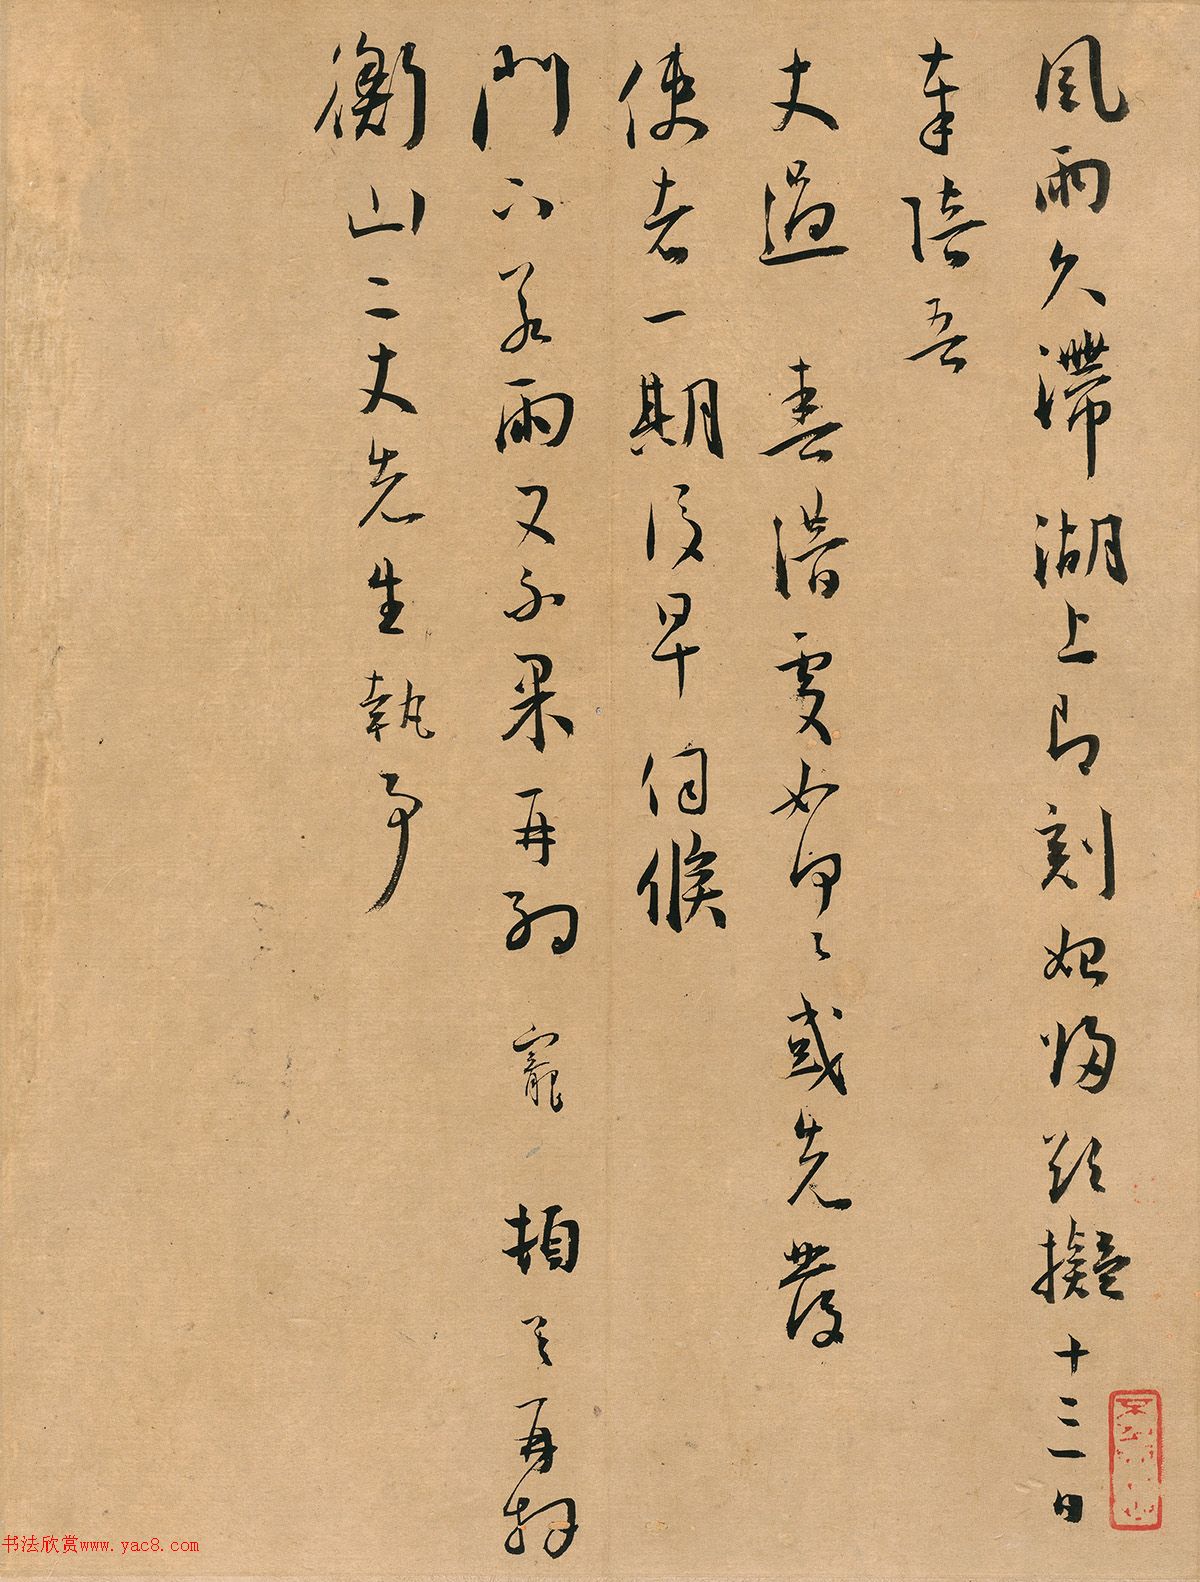 風雨久滯湖上即刻始歸欲擬十三日
奉陪吾
丈過 春潛處如何〻或先發
使者一期後早 伺候
門下若雨又不果再約 寵 頓首再拜
衡山二丈先生執事
书法欣赏www.yac8.com